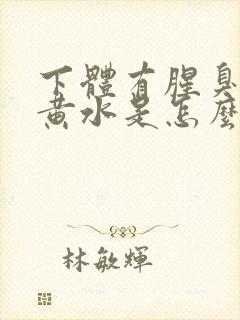 下體有腥臭
黃水是怎麼
林敏輝